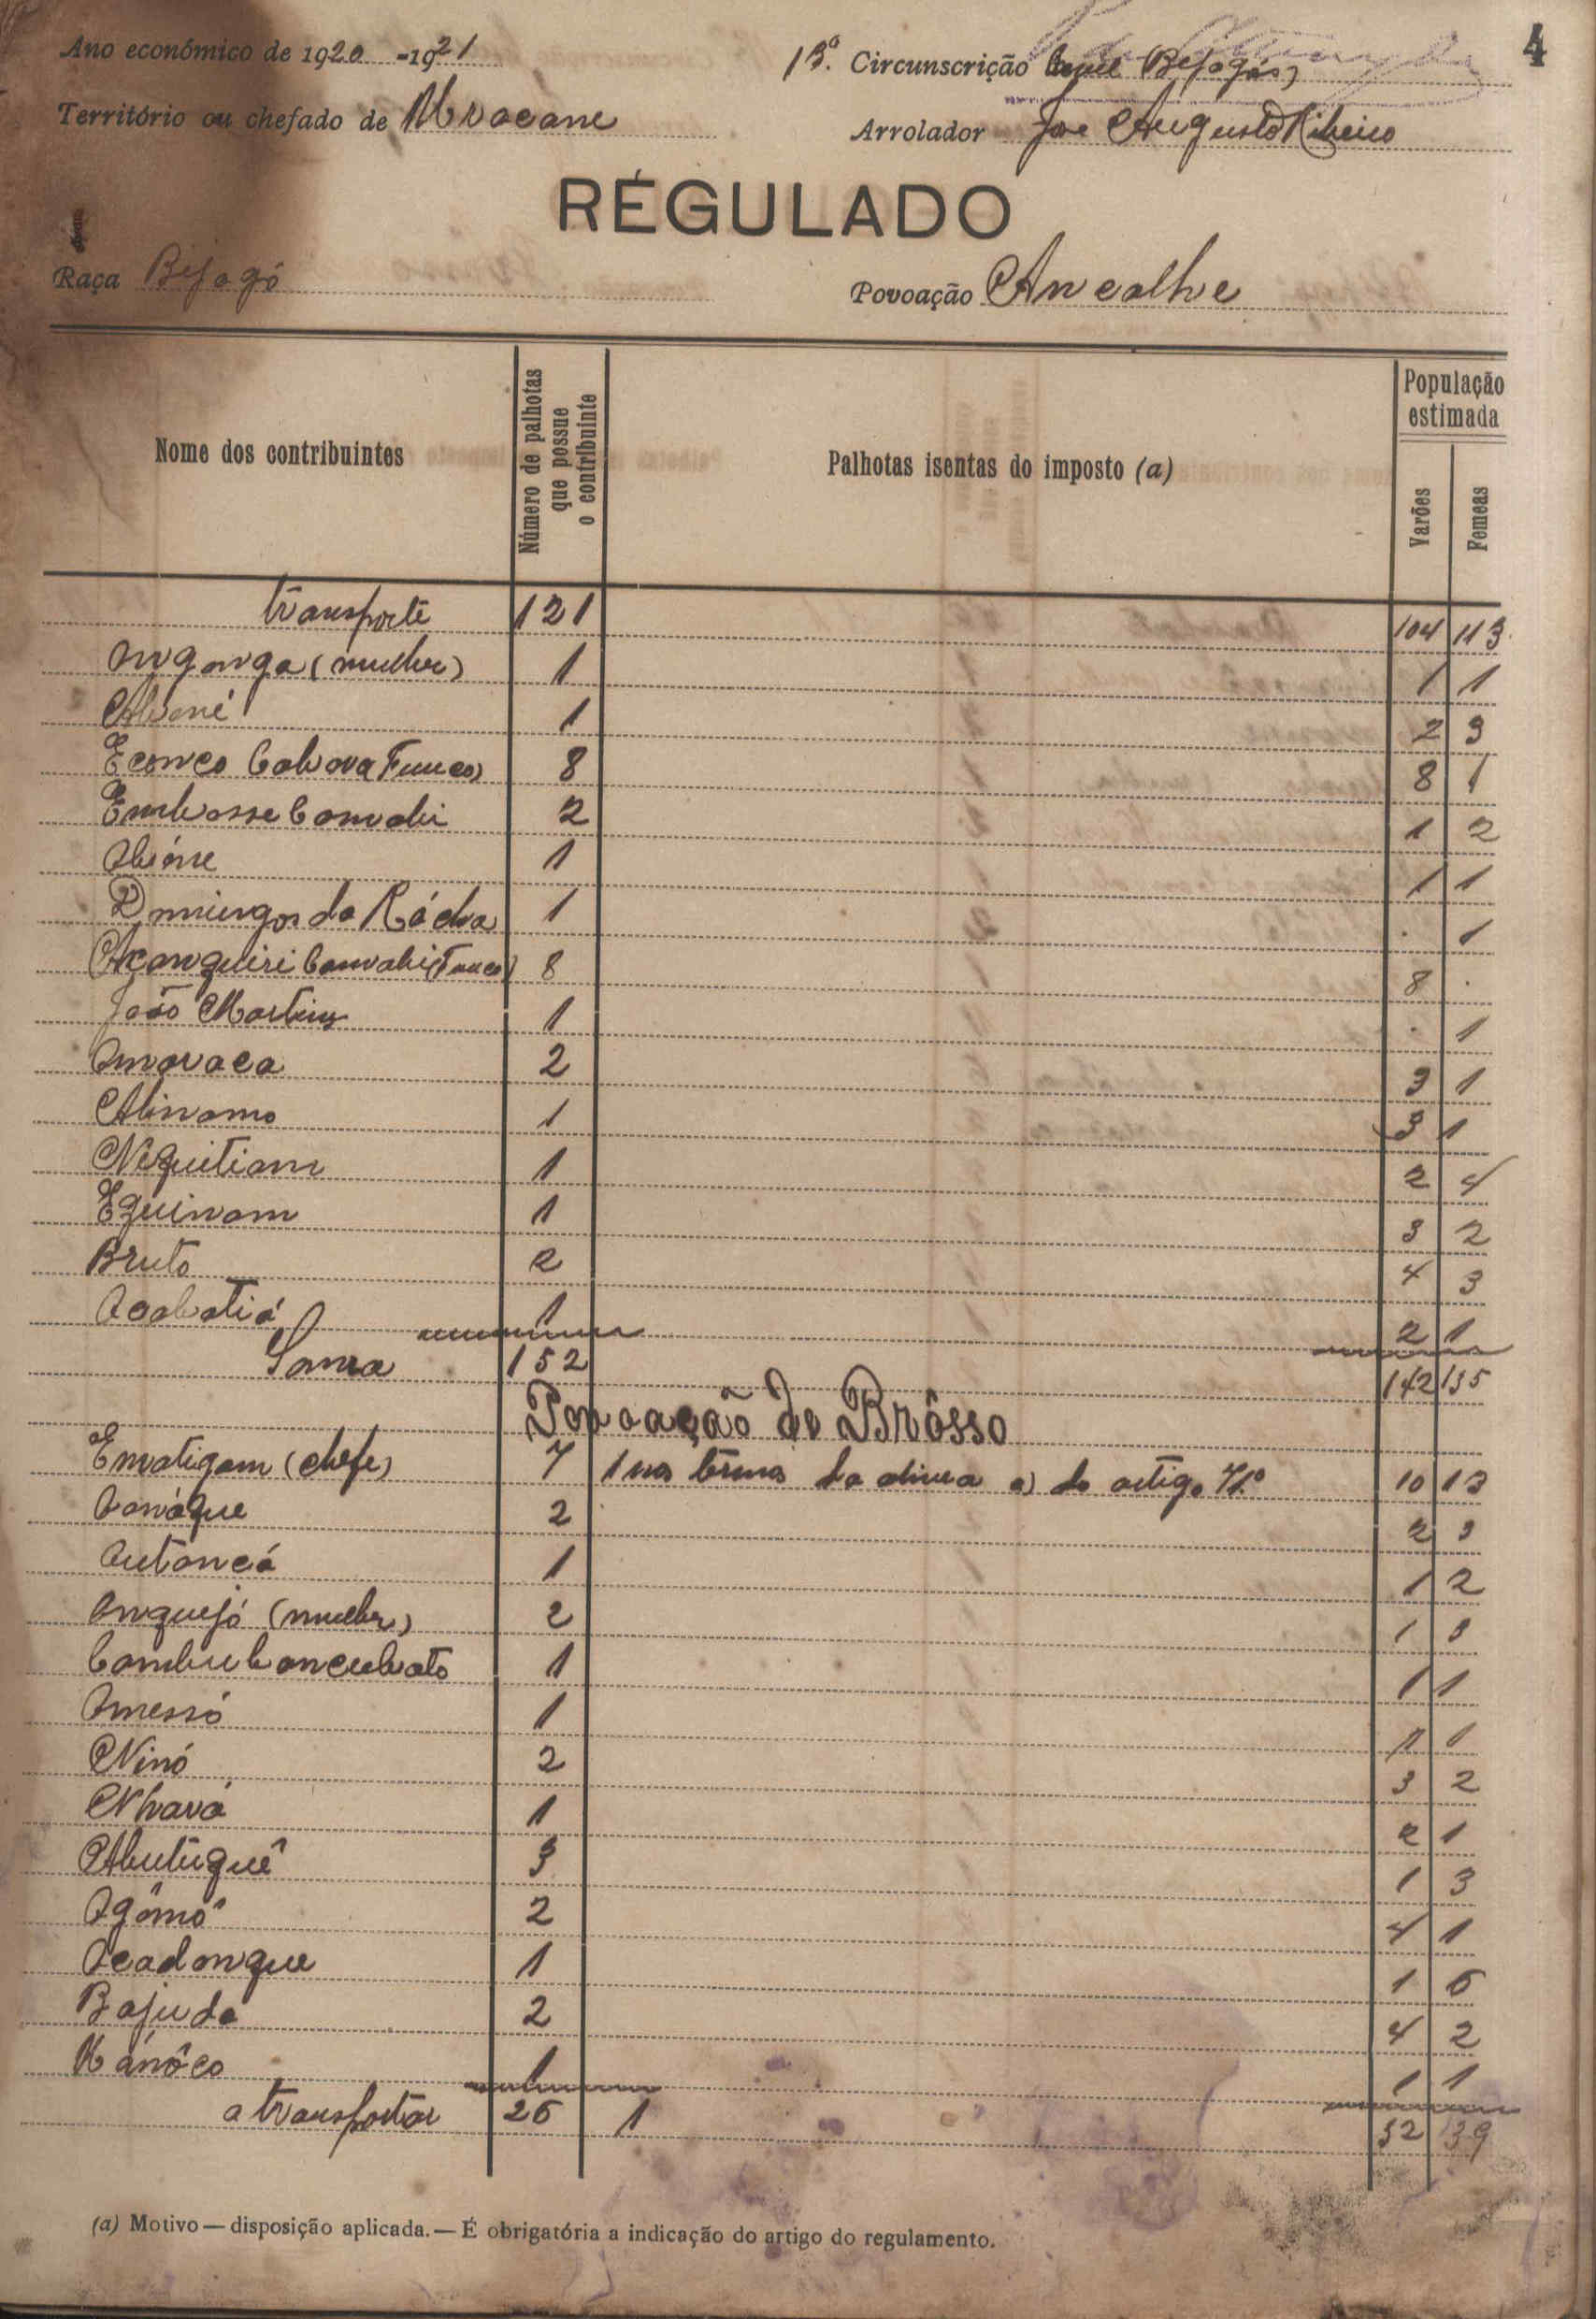 4
Ano económico de 1920-1921
13ª. Circunscrição Civil Bijagós
Território ou chefado de
Arrolador José Augusto Ribeiro
RÉGULADO
Raça Bijagó
Povoação Ancalhe
Nome dos contribuintes
Número de palhotas que possue o contribuinte
Palhotas isentas do imposto (a)
População estimada
Varões
Femeas
transporte 121 104 113
Onganga (mulher) 1 1 1
1 2 3
8 8 1
2 1 2
1 1 1
Domingos da Rócha 1 . 1
8 8 .
João Martins 1 . 1
Omaraca 2 3 1
Abinamo 1 3 1
Nequitiam 1 2 4
Equinam 1 3 2
Bruto 2 4 3
1 2 1
Soma 152 142 135
Povoação de Brôsso
Ematigam (chefe) 7 1 nos termos da alinea a) do artigo 7º 10 13
2 2 3
Outancá 1 1 2
Onquejó (mulher) 2 1 3
1 1 1
Omessó 1 1 1
Ninó 2 3 2
Nhará 1 2 1
Abutuguê 3 1 3
Ogômó 2 4 1
Ocadonque 1 1 6
Bajuda 2 4 2
Kánôco 1 1 1
a transportar 26 1 32 39
(a) Motivo — disposição aplicada. — É obrigatória a indicação do artigo do regulamento.